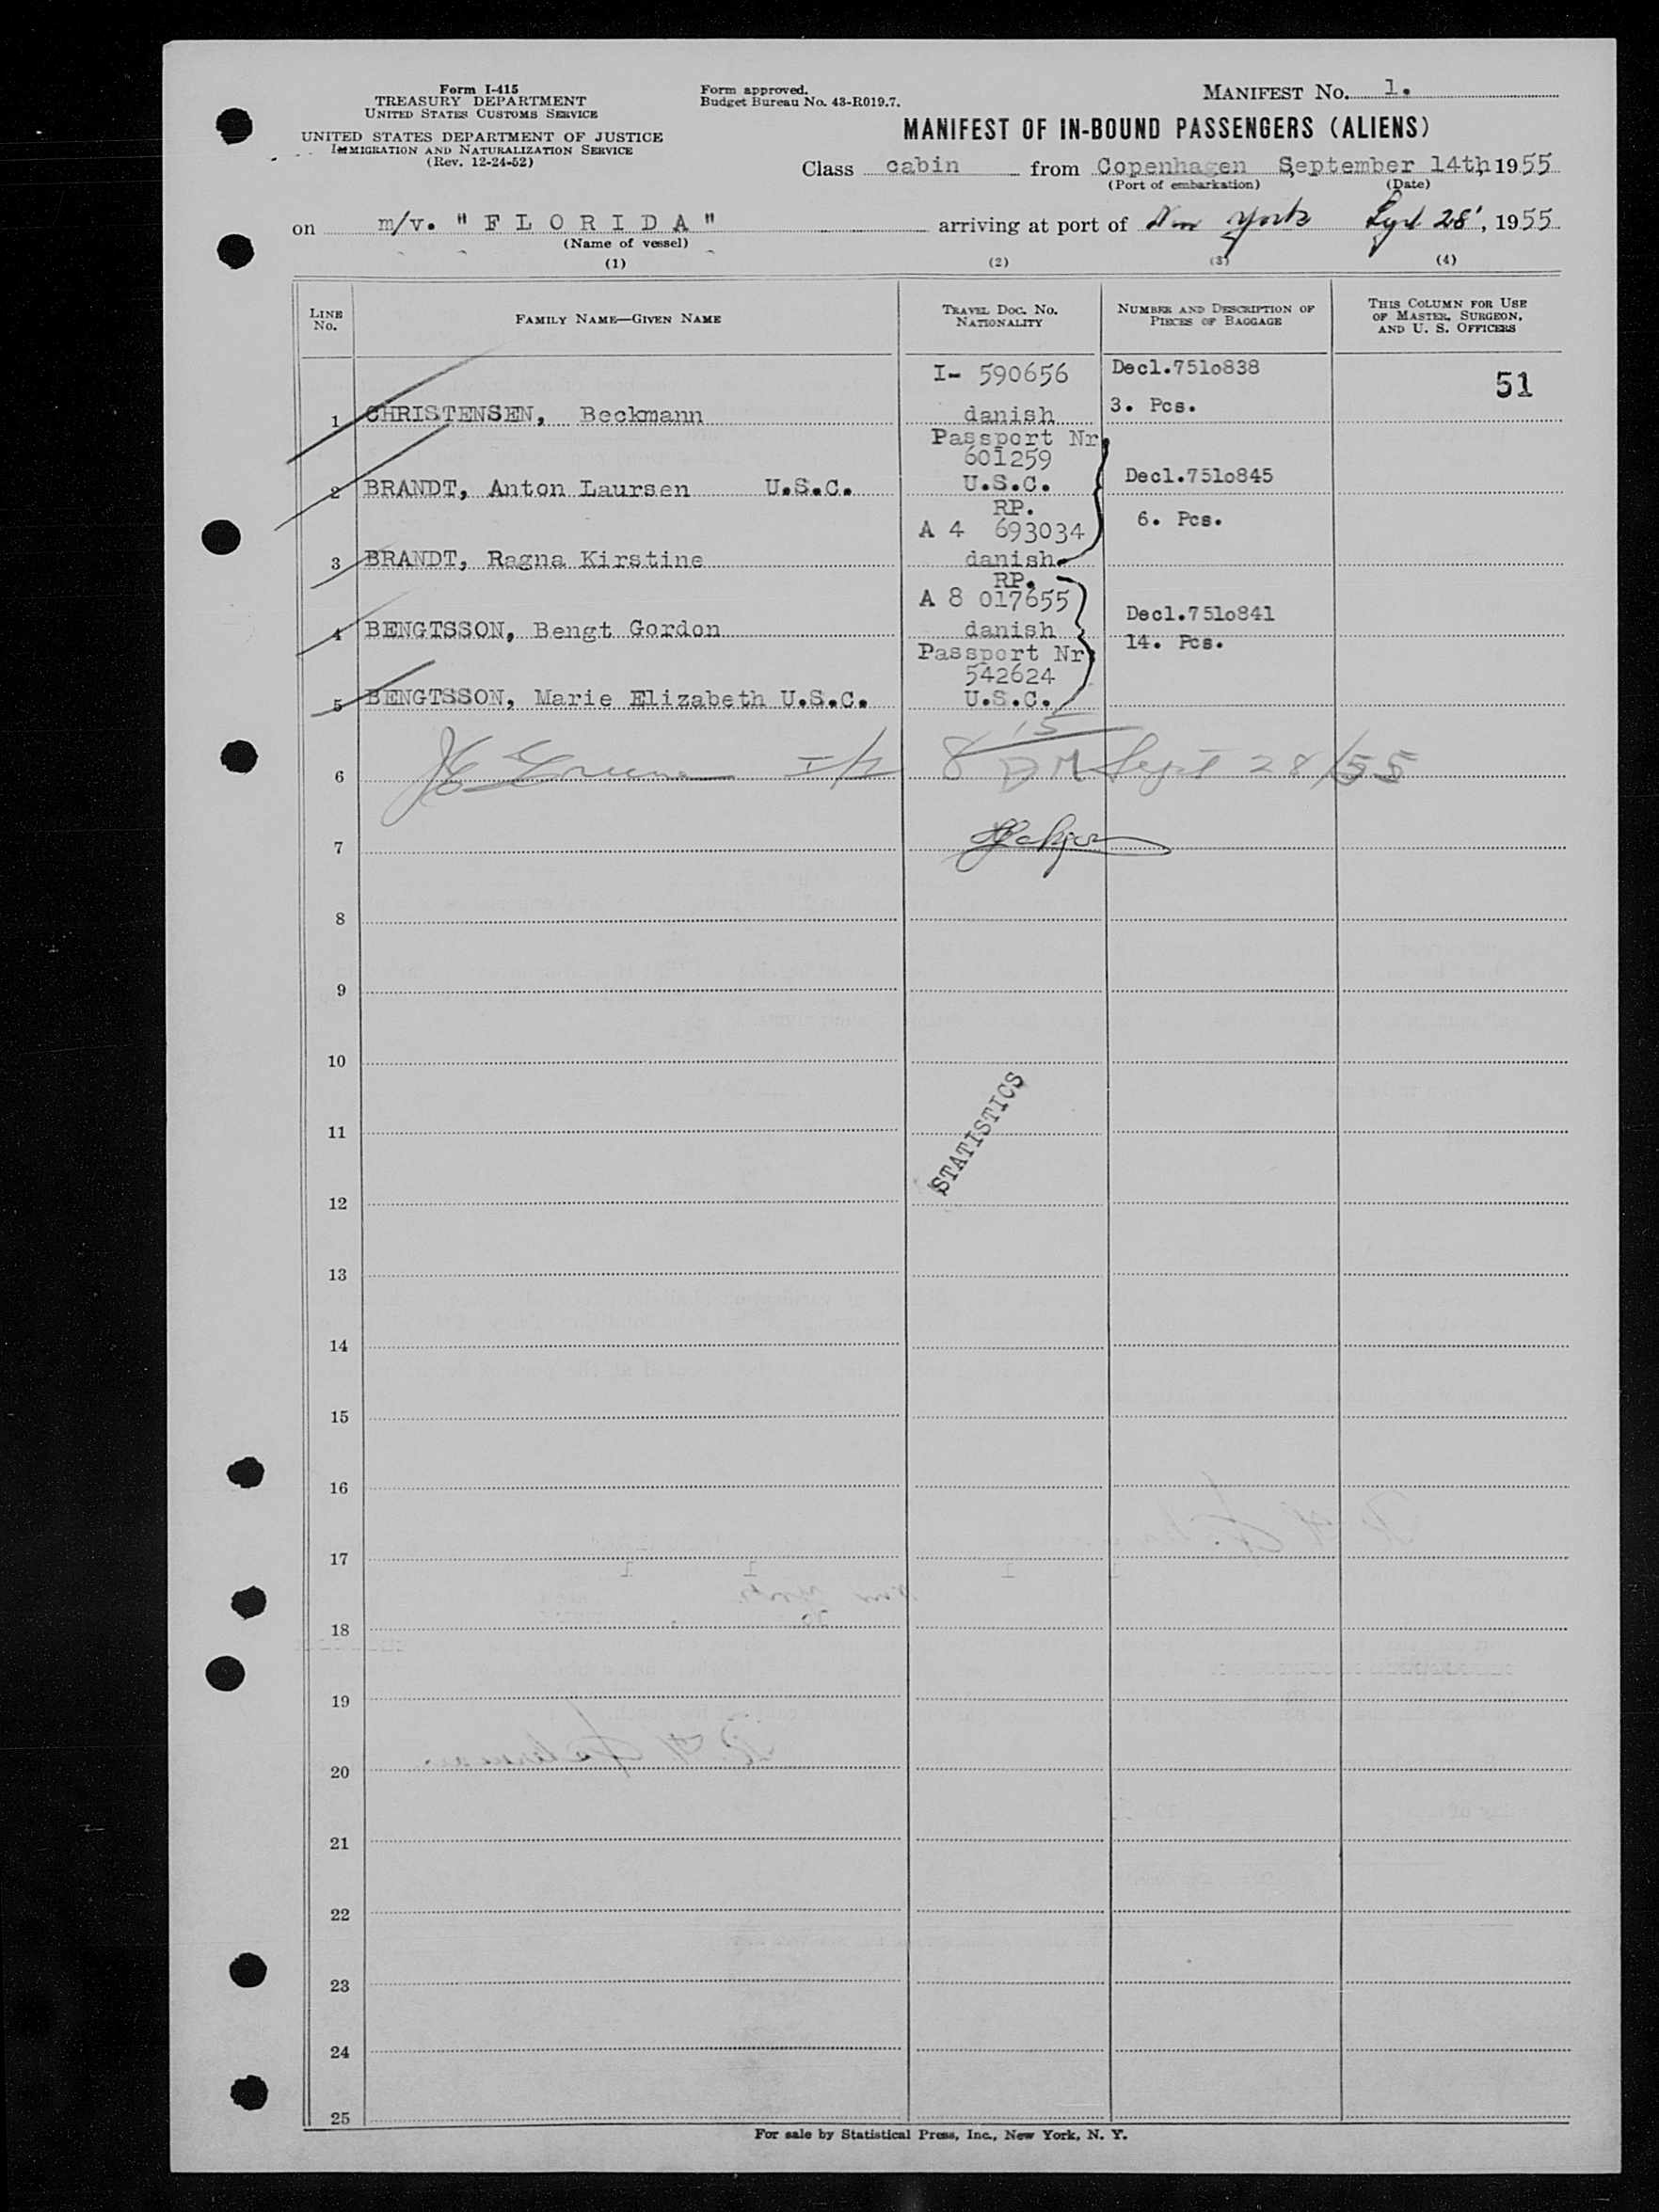 Form I-415
TREASURY DEPARTMENT
UNITED STATES CUSTOMS SERVICE
UNITED STATES DEPARTMENT OF JUSTICE
IMMIGRATION AND NATURALIZATION SERVICE
(Rev. 12-24-52)
Form approved.
Budget Bureau No. 43-R019.7.
MANIFEST NO. 1.
MANIFEST OF IN-BOUND PASSENGERS (ALIENS)
Class cabin from Copenhagen September 14th, 1955
(Port of embarkation) (Date)
on m/v. "F L O R I D A" arriving at port of New York Sept 28', 1955
(Name of vessel)
(1) (2) (3) (4)
LINE No.
FAMILY NAME—GIVEN NAME
TRAVEL DOC. NO. NATIONALITY
NUMBER AND DESCRIPTION OF PIECES OF BAGGAGE
THIS COLUMN FOR USE OF MASTER, SURGEON, AND U. S. OFFICERS
I- 590656 Decl.751o838 51
3. Pcs.
1 CHRISTENSEN, Beckmann danish
Passport Nr
601259
2 BRANDT, Anton Laursen U.S.C. U.S.C. Decl.751o845
RP. 6. Pcs.
A 4 693034
3 BRANDT, Ragna Kirstine danish
RP.
A 8 017655 Decl.751o841
4 BENGTSSON, Bengt Gordon danish 14. Pcs.
Passport Nr
542624
5 BENGTSSON, Marie Elizabeth U.S.C. U.S.C.
6 8 15 Sept 28/55
7
8
9
10
11
STATISTICS
12
13
14
15
16
17
18
19
20
21
22
23
24
25
For sale by Statistical Press, Inc., New York, N. Y.